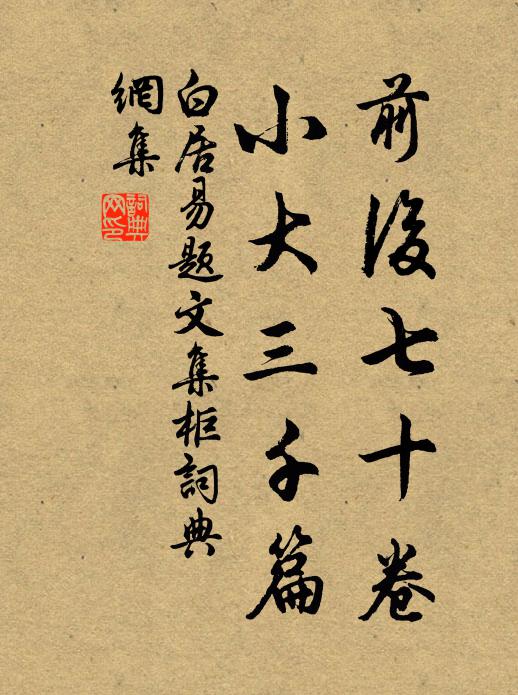 前後七十卷
小大三千篇
白居易題文集柜詞典
網集
詞典網印